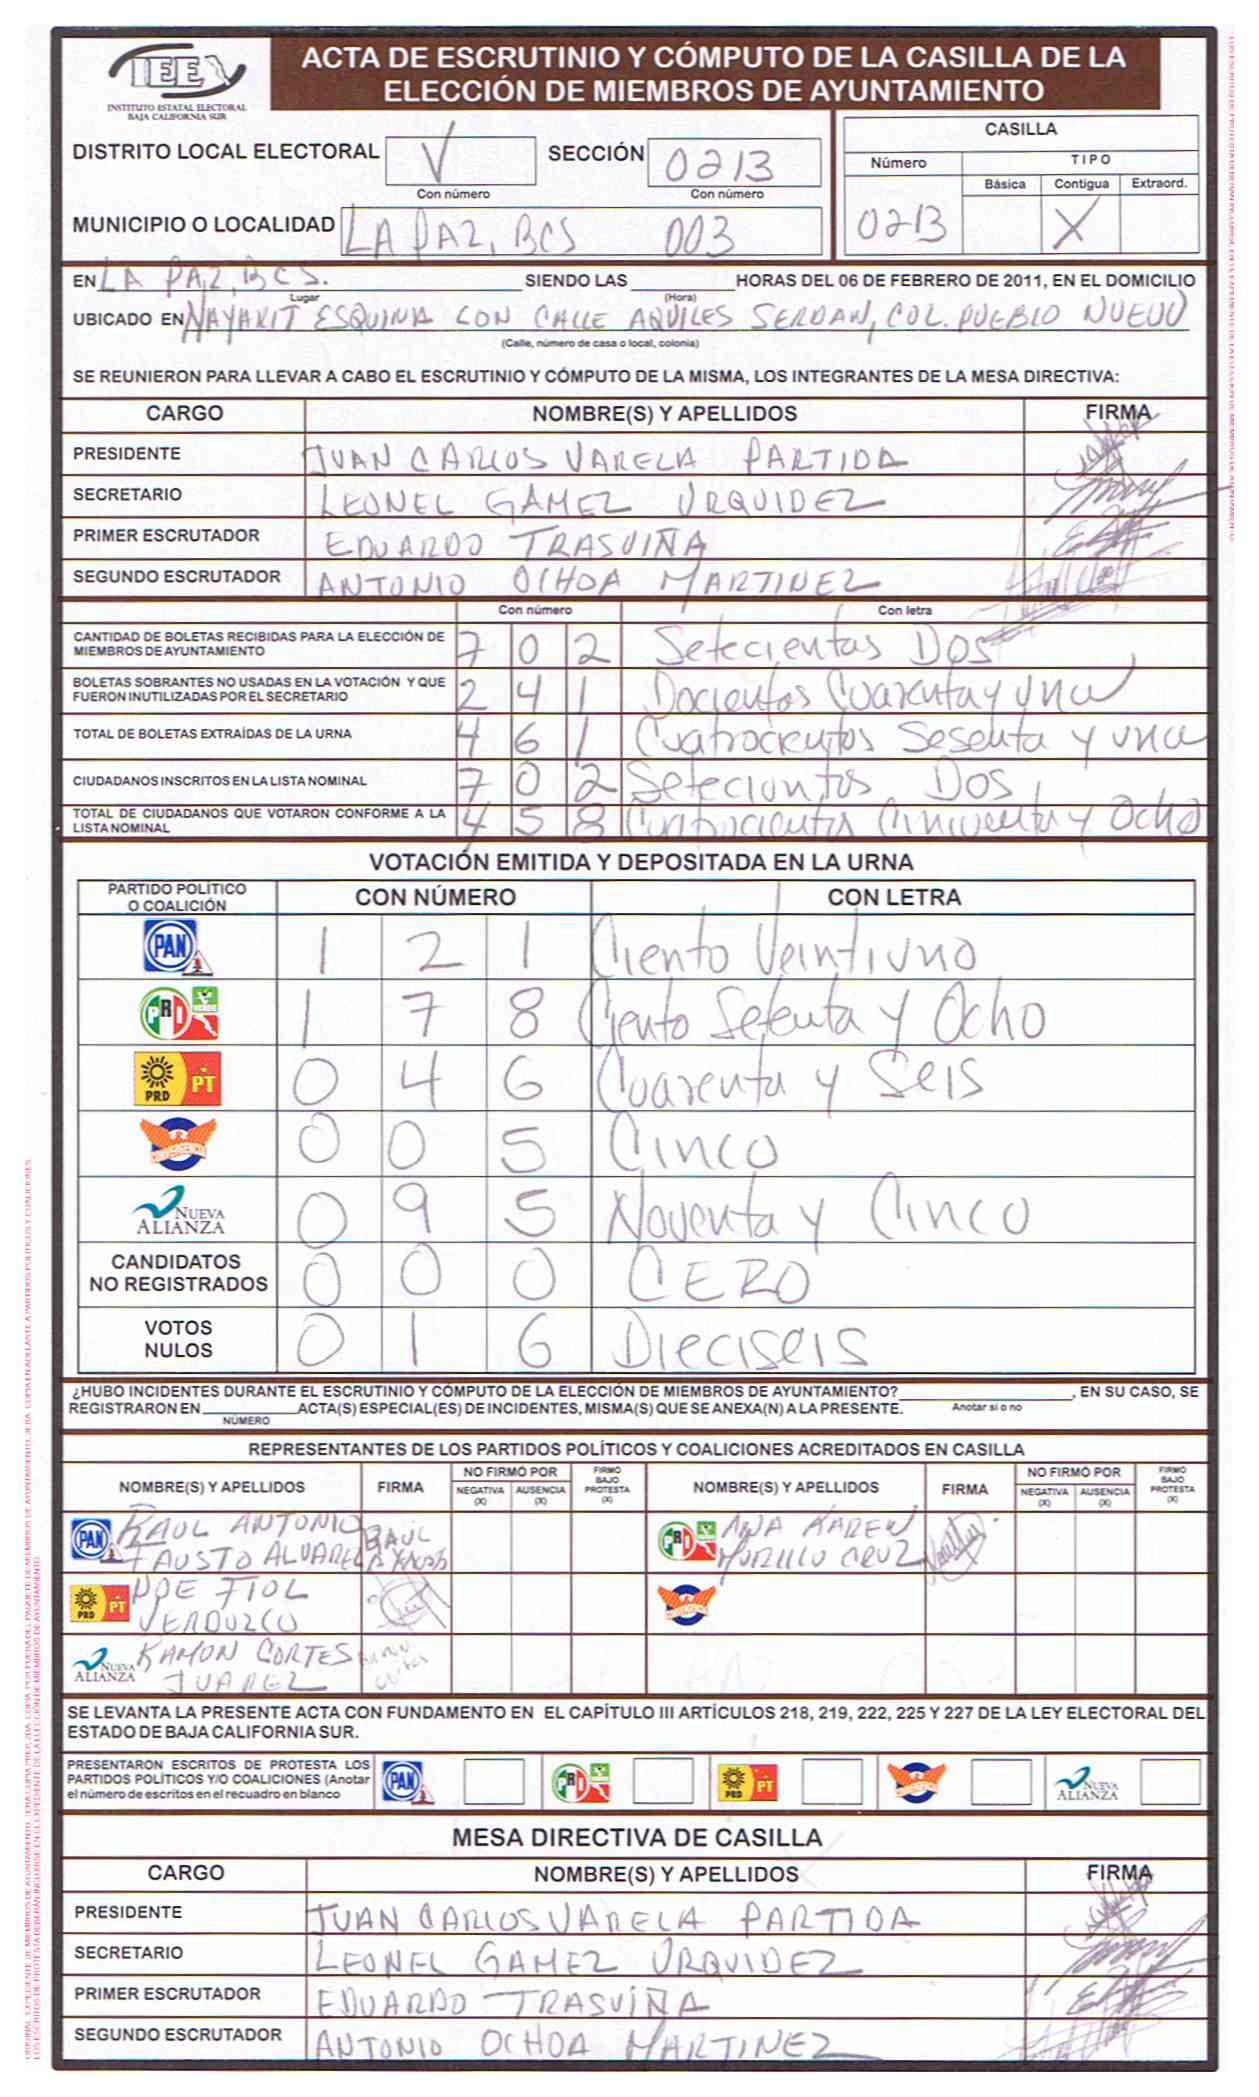 IEE
INSTITUTO ESTATAL ELECTORAL
BAJA CALIFORNIA SUR
ACTA DE ESCRUTINIO Y CÓMPUTO DE LA CASILLA DE LA
ELECCIÓN DE MIEMBROS DE AYUNTAMIENTO
DISTRITO LOCAL ELECTORAL V SECCIÓN 0213
Con número Con número
MUNICIPIO O LOCALIDAD LA PAZ, BCS 003
CASILLA
Número TIPO
Básica Contigua Extraord.
0213 X
EN LA PAZ, BCS. SIENDO LAS HORAS DEL 06 DE FEBRERO DE 2011, EN EL DOMICILIO
Lugar (Hora)
UBICADO EN NAYARIT ESQUINA CON CALLE AQUILES SERDAN, COL. PUEBLO NUEVO
(Calle, número de casa o local, colonia)
SE REUNIERON PARA LLEVAR A CABO EL ESCRUTINIO Y CÓMPUTO DE LA MISMA, LOS INTEGRANTES DE LA MESA DIRECTIVA:
CARGO NOMBRE(S) Y APELLIDOS FIRMA
PRESIDENTE JUAN CARLOS VARELA PARTIDA
SECRETARIO LEONEL GAMEZ URQUIDEZ
PRIMER ESCRUTADOR EDUARDO TRASVIÑA
SEGUNDO ESCRUTADOR ANTONIO OCHOA MARTINEZ
Con número Con letra
CANTIDAD DE BOLETAS RECIBIDAS PARA LA ELECCIÓN DE
MIEMBROS DE AYUNTAMIENTO 7 0 2 Setecientas Dos
BOLETAS SOBRANTES NO USADAS EN LA VOTACIÓN Y QUE
FUERON INUTILIZADAS POR EL SECRETARIO 2 4 1 Docientos Cuarenta y una
TOTAL DE BOLETAS EXTRAÍDAS DE LA URNA 4 6 1 Cuatrocientos Sesenta y una
CIUDADANOS INSCRITOS EN LA LISTA NOMINAL 7 0 2 Setecientos Dos
TOTAL DE CIUDADANOS QUE VOTARON CONFORME A LA
LISTA NOMINAL 4 5 8 Cuatrocientos Cincuenta y Ocho
VOTACIÓN EMITIDA Y DEPOSITADA EN LA URNA
PARTIDO POLÍTICO
O COALICIÓN CON NÚMERO CON LETRA
PAN 1 2 1 Ciento Veintiuno
PRI VERDE 1 7 8 Ciento Setenta y Ocho
PRD PT 0 4 6 Cuarenta y Seis
CONVERGENCIA 0 0 5 Cinco
NUEVA ALIANZA 0 9 5 Noventa y Cinco
CANDIDATOS
NO REGISTRADOS 0 0 0 CERO
VOTOS
NULOS 0 1 6 Dieciseis
¿HUBO INCIDENTES DURANTE EL ESCRUTINIO Y CÓMPUTO DE LA ELECCIÓN DE MIEMBROS DE AYUNTAMIENTO? , EN SU CASO, SE
REGISTRARON EN ACTA(S) ESPECIAL(ES) DE INCIDENTES, MISMA(S) QUE SE ANEXA(N) A LA PRESENTE. Anotar si o no
NÚMERO
REPRESENTANTES DE LOS PARTIDOS POLÍTICOS Y COALICIONES ACREDITADOS EN CASILLA
NOMBRE(S) Y APELLIDOS FIRMA NO FIRMÓ POR NEGATIVA (X) AUSENCIA (X) FIRMÓ BAJO PROTESTA (X) NOMBRE(S) Y APELLIDOS FIRMA NO FIRMÓ POR NEGATIVA (X) AUSENCIA (X) FIRMÓ BAJO PROTESTA (X)
PAN RAUL ANTONIO RAUL PRI ANA KAREN
FAUSTO ALVAREZ MURILLO CRUZ
PRD PT NOE FIOL CONVERGENCIA
VERDUZCO
NUEVA ALIANZA RAMON CORTES
JUAREZ
SE LEVANTA LA PRESENTE ACTA CON FUNDAMENTO EN EL CAPÍTULO III ARTÍCULOS 218, 219, 222, 225 Y 227 DE LA LEY ELECTORAL DEL
ESTADO DE BAJA CALIFORNIA SUR.
PRESENTARON ESCRITOS DE PROTESTA LOS
PARTIDOS POLÍTICOS Y/O COALICIONES (Anotar
el número de escritos en el recuadro en blanco
PAN PRI PRD PT CONVERGENCIA NUEVA ALIANZA
MESA DIRECTIVA DE CASILLA
CARGO NOMBRE(S) Y APELLIDOS FIRMA
PRESIDENTE JUAN CARLOS VARELA PARTIDA
SECRETARIO LEONEL GAMEZ URQUIDEZ
PRIMER ESCRUTADOR EDUARDO TRASVIÑA
SEGUNDO ESCRUTADOR ANTONIO OCHOA MARTINEZ